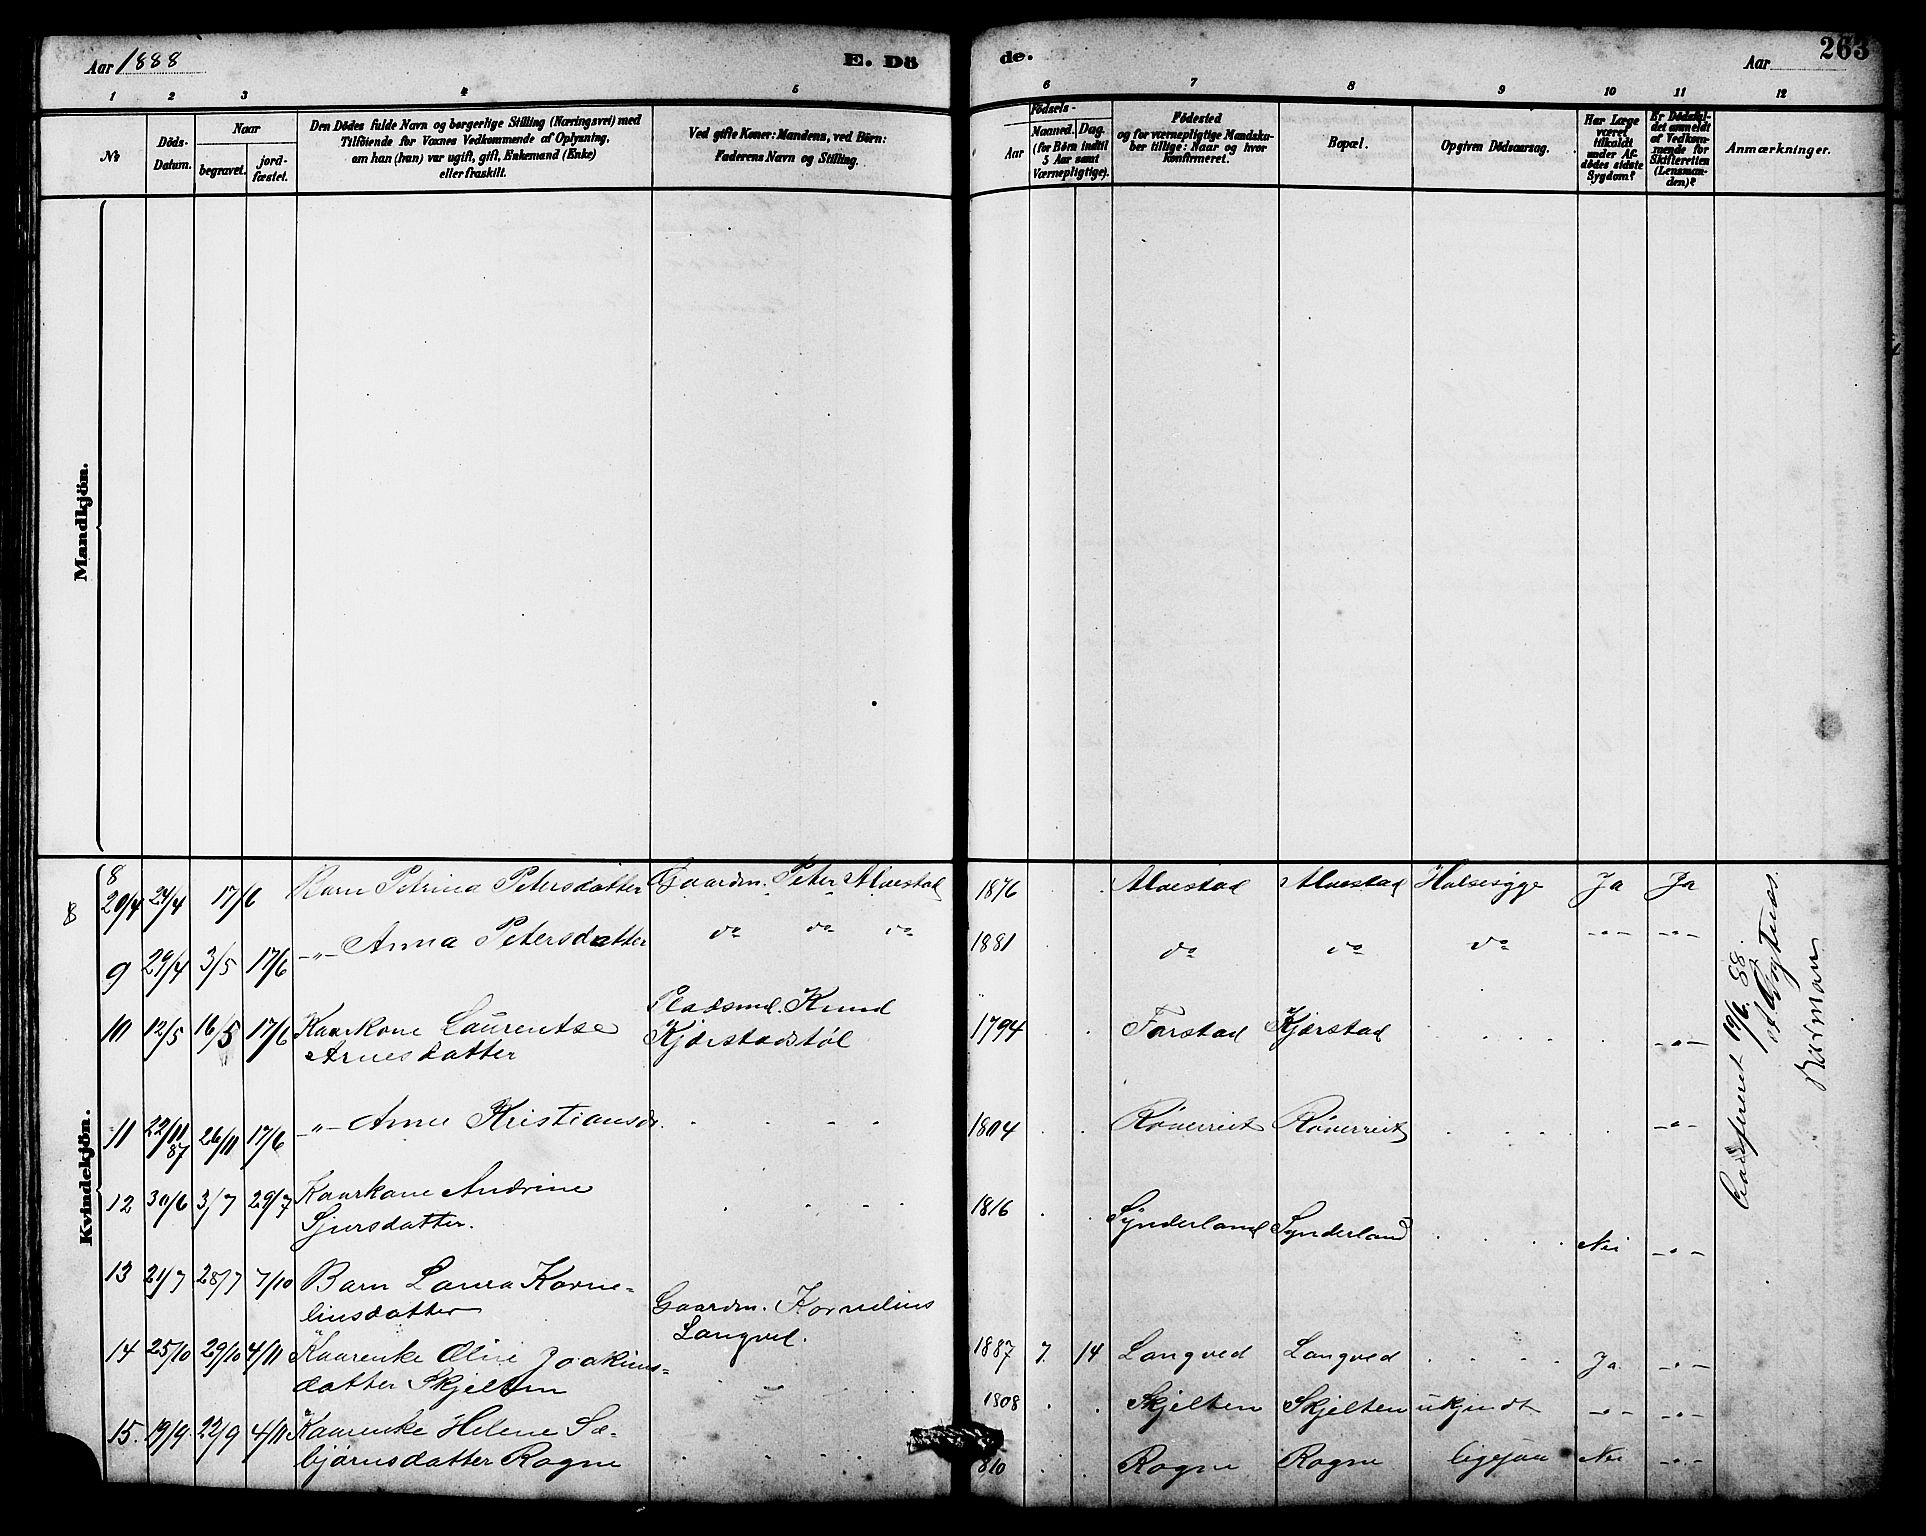 Aar 1888
E. Dö
de.
Aar
263
1 2 3 4 5 6 7 8 9 10 11 12
No
Döds-
Datum.
Naar
begravet.
jord-
fæstet.
Den Dödes fulde Navn og borgerlige Stilling (Næringsvei) med
Tilföiende for Voxnes Vedkommende af Oplysning,
om han (hun) var ugift, gift, Enkemand (Enke)
eller fraskilt.
Ved gifte Koner: Mandens, ved Börn:
Faderens Navn og Stilling.
Födsels-
Aar
Maaned. Dag.
(for Börn indtil
5 Aar samt
Værnepligtige).
Födested
og for værnepligtige Mandska-
ber tillige: Naar og hvor
Konfirmeret.
Bopæl.
Opgiven Dödsaarsag.
Har Læge
været
tilkaldt
under Af-
dödes sidste
Sygdom?
Er Dödsfal-
det anmeldt
af Vedkom-
mende for
Skifteretten
(Lensman-
den)?
Anmærkninger.
Mandkjön.
Kvindekjön.
8
8 20/4 24/4 17/6 Barn Petrina Petersdatter Gaardm. Peter Alvestad 1876 Alvestad Alvestad Halsesyge Ja Ja
9 29/4 3/5 17/6 -"- Anna Petersdatter do do do 1881 do do do -"- -"-
10 12/5 16/5 17/6 Kaarkone Laurentse Pladsmd. Knud 1794 Farstad Kjærstad -"-
Arnesdatter Kjærstadstøl
11 22/11 87 26/11 17/6 -"- Anne Kristiansdr. 1804 Røverreit Røverreit -"-
12 30/6 3/7 29/7 Kaarkone Andrine 1816 Synderland Synderland Nei -"-
Sjursdatter.
13 21/7 28/7 7/10 Barn Laura Korne-
liusdatter Gaardm. Kornelius
Langved. 1887 7. 14 Langved Langved Ja -"-
14 25/10 29/10 4/11 Kaarenke Oline Joakims-
datter Skjelten 1808 Skjelten Skjelten ukjendt -"- -"-
15. 19/9 22/9 4/11 Kaarenke Helene Sæ-
bjørnsdatter Rogne 810 Rogne Rogne ligesaa Nei -"-
19/6. 88.